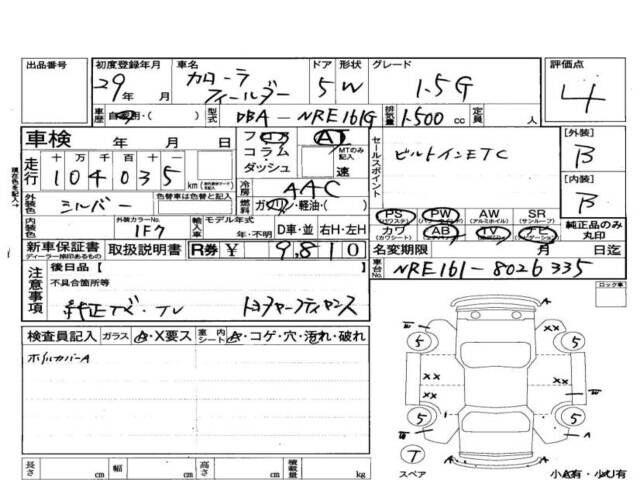 出品番号 初度登録年月 車名 ドア 形状 グレード 評価点
29年 月 カローラ フィールダー 5 W 1.5G 4
車歴 自家用・( ) 型式 DBA-NRE161G 排気量 1500 cc 定員 人
車検 年 月 日 フロア AT セールスポイント [外装]
現在色を記入→ 走行 十万 千 百 十 一 コラム・ MTのみ記入 ビルトインETC B
104035 km ダッシュ 速 [内装]
冷房 AAC B
外装色 シルバー 色替車は色替と記入 燃料 ガソリン・軽油・( ) PS (パワステ) PW (パワーウィンドウ) AW (アルミホイル) SR (サンルーフ) 純正品のみ丸印
内装色 外装カラーNo. 1F7 輸入車 モデル年式 年・不明 D車・並 右H・左H カワ (カワシート) AB (エアバッグ) TV (テレビ) ナビ (ナビゲーション)
新車保証書 ディーラー捺印あるもの 取扱説明書 R券 ¥ 9,810 名変期限 月 日迄
注意事項 後日品 [ ] 車台No. NRE161-8026335
不具合箇所等 ロック車
純正ナビ・TV
検査員記入 ガラス A・X要ス 室内シート A・コゲ・穴・汚れ・破れ
ホイルカバーA
5 5
XX XX
XX
5 5
T
スペア 小A有・小U有
長さ cm 幅 cm 高さ cm 積載量 kg